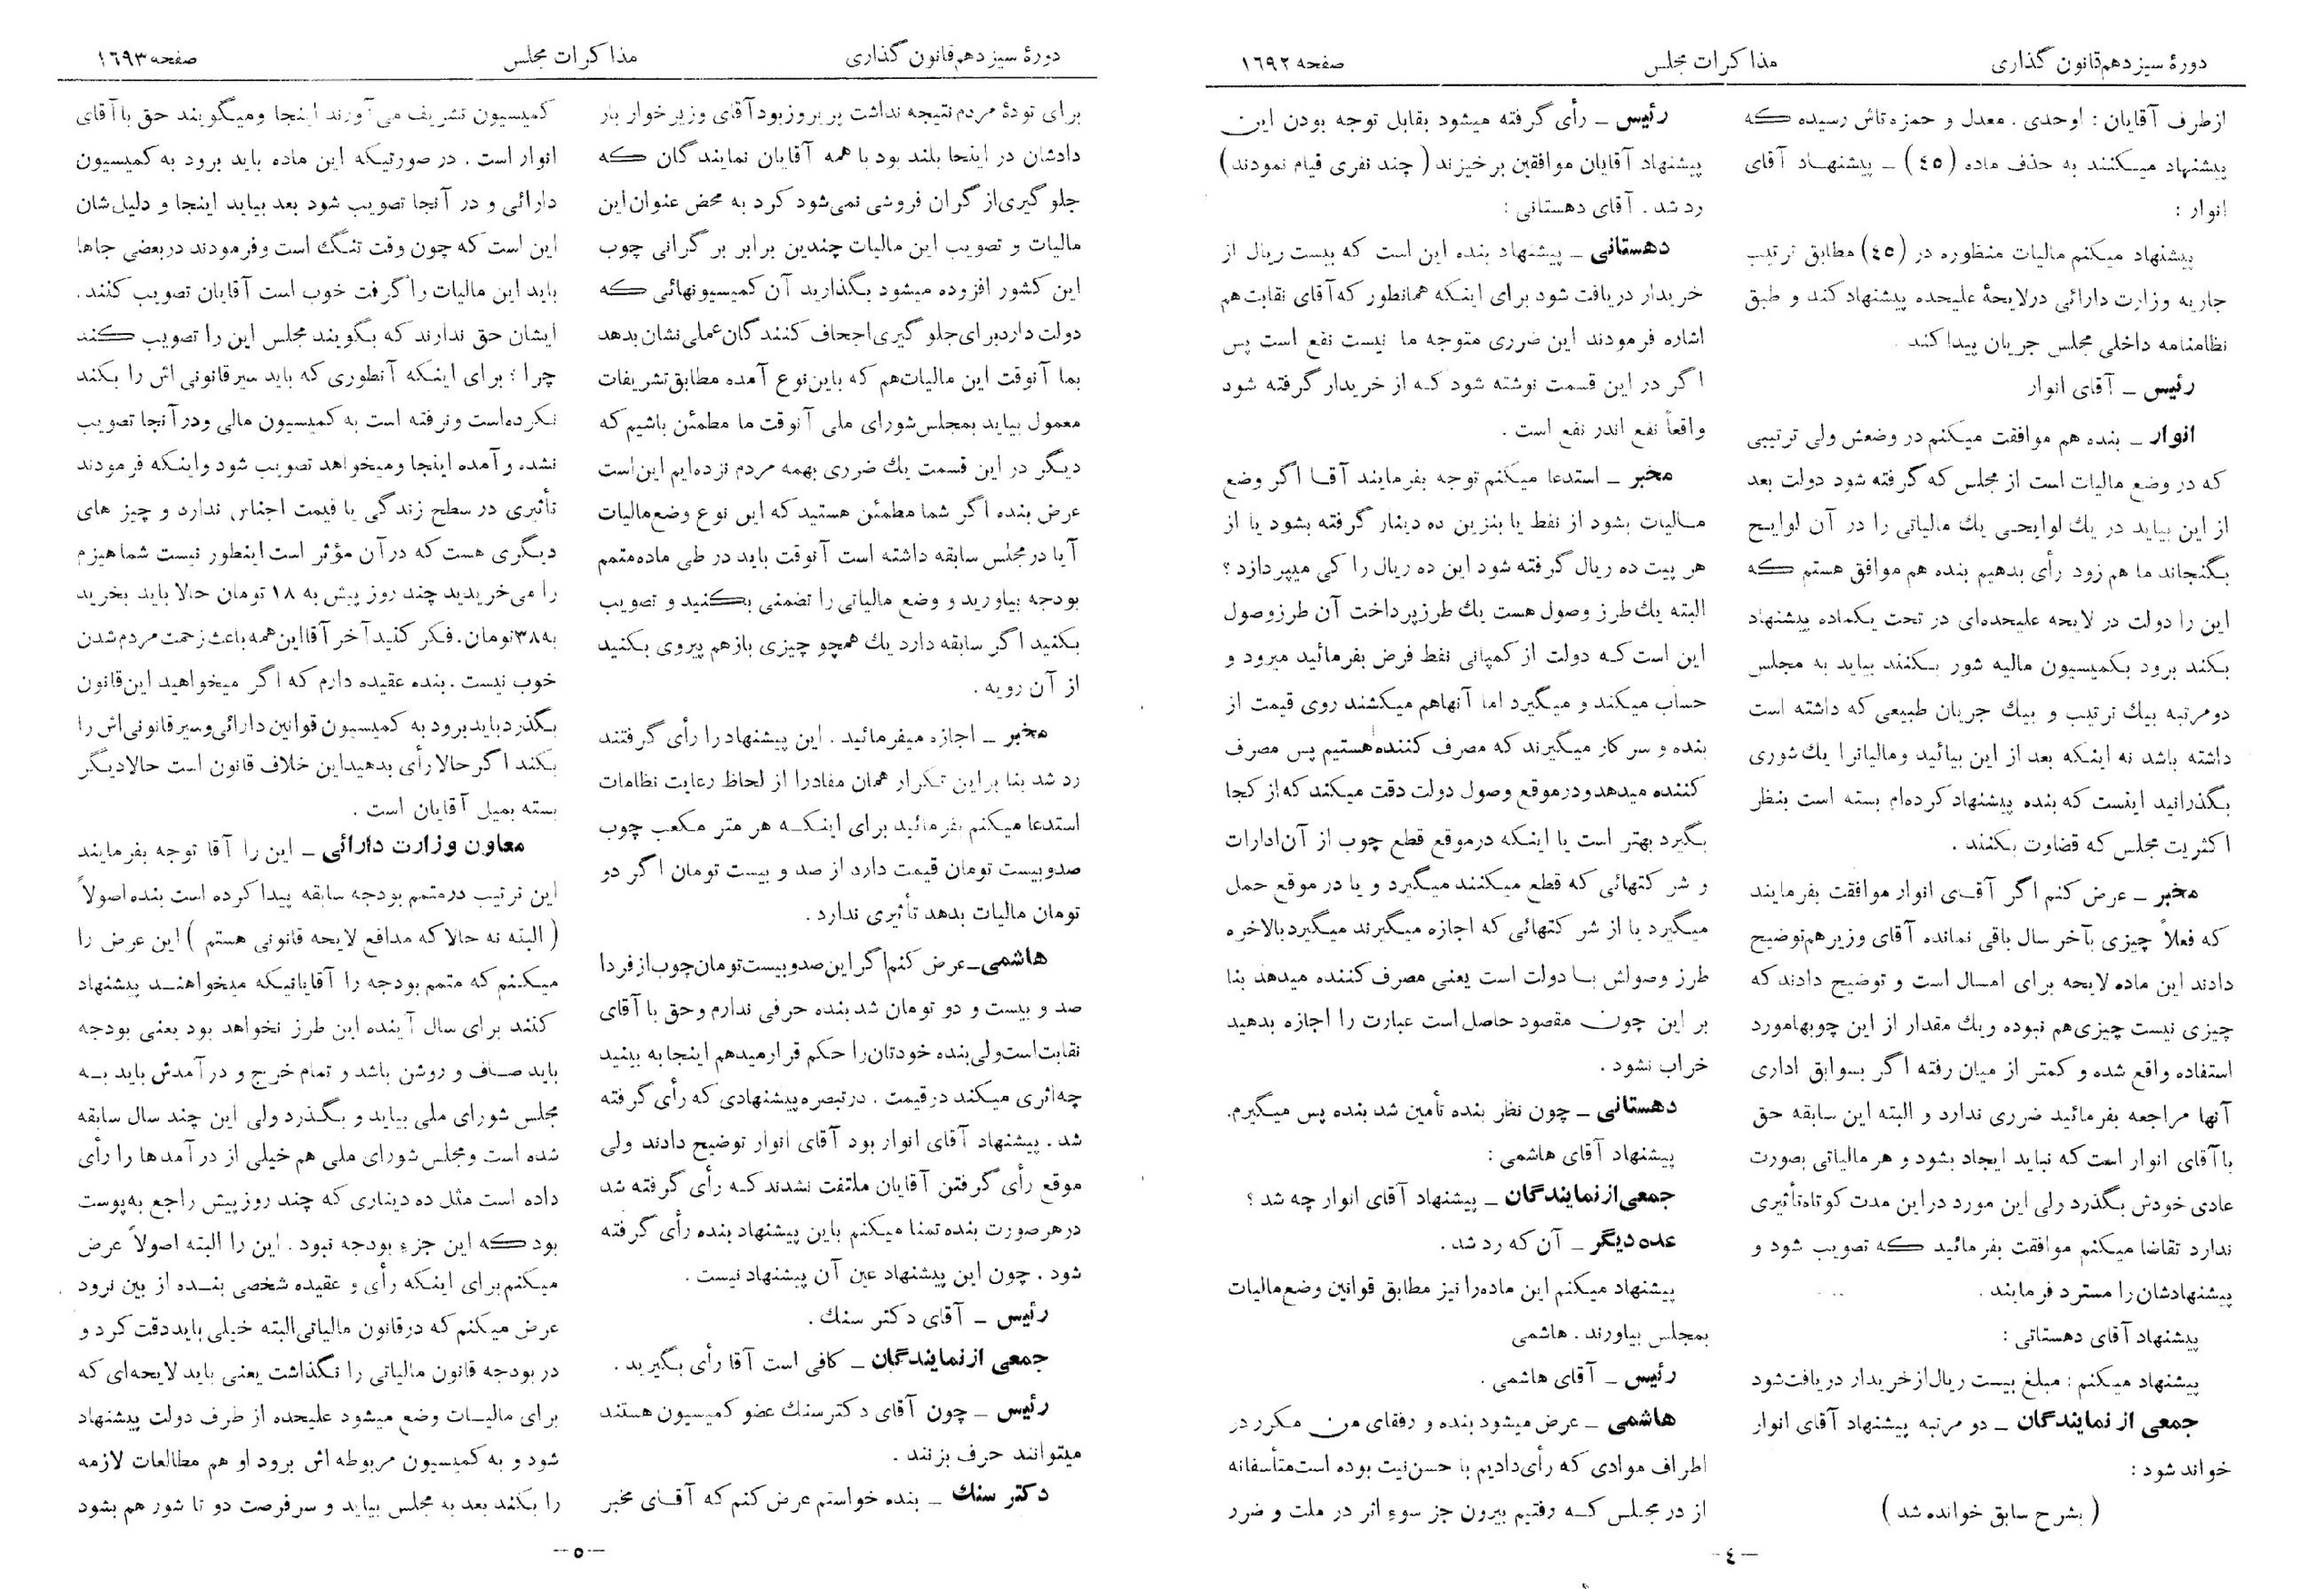 دورهٔ سیزدهم قانون گذاری
مذاکرات مجلس
صفحه ۱۶۹۲
ازطرف آقایان : اوحدی . معدل و حمزه تاش رسیده که
پیشنهاد میکنند به حذف ماده (٤٥) ــ پیشنهاد آقای
انوار :
پیشنهاد میکنم مالیات منظوره در (٤٥) مطابق ترتیب
جاریه وزارت دارائی درلایحهٔ علیحده پیشنهاد کند و طبق
نظامنامه داخلی مجلس جریان پیدا کند .
رئیس ــ آقای انوار
انوار ــ بنده هم موافقت میکنم در وضعش ولی ترتیبی
که در وضع مالیات است از مجلس که گرفته شود دولت بعد
از این بیاید در یك لوایحی یك مالیاتی را در آن لوایح
بگنجاند ما هم زود رأی بدهیم بنده هم موافق هستم که
این را دولت در لایحه علیحده‌ای در تحت یکماده پیشنهاد
بکند برود بکمیسیون مالیه شور بکنند بیاید به مجلس
دومرتبه بیك ترتیب و بیك جریان طبیعی که داشته است
داشته باشد نه اینکه بعد از این بیائید ومالیاترا یك شوری
بگذرانید اینست که بنده پیشنهاد کرده‌ام بسته است بنظر
اکثریت مجلس که قضاوت بکنند .
مخبر ــ عرض کنم اگر آقای انوار موافقت بفرمایند
که فعلاً چیزی بآخر سال باقی نمانده آقای وزیرهم توضیح
دادند این ماده لایحه برای امسال است و توضیح دادند که
چیزی نیست چیزی هم نبوده ویك مقدار از این چوبهامورد
استفاده واقع شده و کمتر از میان رفته اگر بسوابق اداری
آنها مراجعه بفرمائید ضرری ندارد و البته این سابقه حق
با آقای انوار است که نباید ایجاد بشود و هر مالیاتی بصورت
عادی خودش بگذرد ولی این مورد دراین مدت کوتاه تأثیری
ندارد تقاضا میکنم موافقت بفرمائید که تصویب شود و
پیشنهادشان را مسترد فرمایند .
پیشنهاد آقای دهستانی :
پیشنهاد میکنم : مبلغ بیست ریال از خریدار دریافت شود
جمعی از نمایندگان ــ دو مرتبه پیشنهاد آقای انوار
خواند شود :
( بشرح سابق خوانده شد )
رئیس ــ رأی گرفته میشود بقابل توجه بودن این
پیشنهاد آقایان موافقین برخیزند ( چند نفری قیام نمودند )
رد شد . آقای دهستانی :
دهستانی ــ پیشنهاد بنده این است که بیست ریال از
خریدار دریافت شود برای اینکه همانطور که آقای نقابت هم
اشاره فرمودند این ضرری متوجه ما نیست نفع است پس
اگر در این قسمت نوشته شود که از خریدار گرفته شود
واقعاً نفع اندر نفع است .
مخبر ــ استدعا میکنم توجه بفرمایند آقا اگر وضع
مالیات بشود از نفط یا بنزین ده دینار گرفته بشود یا از
هر پیت ده ریال گرفته شود این ده ریال را کی میپردازد ؟
البته یك طرز وصول هست یك طرز پرداخت آن طرز وصول
این است که دولت از کمپانی نفط فرض بفرمائید میرود و
حساب میکند و میگیرد اما آنهاهم میکشند روی قیمت از
بنده و سرکار میگیرند که مصرف کننده هستیم پس مصرف
کننده میدهد و درموقع وصول دولت دقت میکند که از کجا
بگیرد بهتر است یا اینکه درموقع قطع چوب از آن ادارات
و شرکتهائی که قطع میکنند میگیرد و یا در موقع حمل
میگیرد یا از شرکتهائی که اجازه میگیرند میگیرد بالاخره
طرز وصولش با دولت است یعنی مصرف کننده میدهد بنا
بر این چون مقصود حاصل است عبارت را اجازه بدهید
خراب نشود .
دهستانی ــ چون نظر بنده تأمین شد بنده پس میگیرم.
پیشنهاد آقای هاشمی :
جمعی از نمایندگان ــ پیشنهاد آقای انوار چه شد ؟
عده دیگر ــ آن که رد شد .
پیشنهاد میکنم این ماده را نیز مطابق قوانین وضع مالیات
بمجلس بیاورند . هاشمی
رئیس ــ آقای هاشمی .
هاشمی ــ عرض میشود بنده و رفقای من مکرر در
اطراف موادی که رأی دادیم با حسن نیت بوده است متأسفانه
از در مجلس که رفتیم بیرون جز سوء اثر در ملت و ضرر
ــ ٤ ــ
دورهٔ سیزدهم قانون گذاری
مذاکرات مجلس
صفحه ۱۶۹۳
برای تودهٔ مردم نتیجه نداشت پریروز بود آقای وزیر خوار بار
دادشان در اینجا بلند بود با همه آقایان نمایندگان که
جلوگیری از گران فروشی نمی‌شود کرد به محض عنوان این
مالیات و تصویب این مالیات چندین برابر بر گرانی چوب
این کشور افزوده میشود بگذارید آن کمیسیونهائی که
دولت دارد برای جلوگیری اجحاف کنندگان عملی نشان بدهد
بما آنوقت این مالیات هم که باین نوع آمده مطابق تشریفات
معمول بیاید بمجلس شورای ملی آنوقت ما مطمئن باشیم که
دیگر در این قسمت یك ضرری بهمه مردم نزده‌ایم این است
عرض بنده اگر شما مطمئن هستید که این نوع وضع مالیات
آیا در مجلس سابقه داشته است آنوقت باید در طی ماده متمم
بودجه بیاورید و وضع مالیاتی را تضمنی بکنید و تصویب
بکنید اگر سابقه دارد یك همچو چیزی باز هم پیروی بکنید
از آن رویه .
مخبر ــ اجازه میفرمائید . این پیشنهاد را رأی گرفتند
رد شد بنا بر این تکرار همان مفادرا از لحاظ رعایت نظامات
استدعا میکنم بفرمائید برای اینکه هر متر مکعب چوب
صدوبیست تومان قیمت دارد از صد و بیست تومان اگر دو
تومان مالیات بدهد تأثیری ندارد .
هاشمی ــ عرض کنم اگر این صدوبیست تومان چوب از فردا
صد و بیست و دو تومان شد بنده حرفی ندارم و حق با آقای
نقابت است ولی بنده خودتان را حکم قرار میدهم اینجا به بینید
چه اثری میکند در قیمت . در تبصره پیشنهادی که رأی گرفته
شد . پیشنهاد آقای انوار بود آقای انوار توضیح دادند ولی
موقع رأی گرفتن آقایان ملتفت نشدند که رأی گرفته شد
در هر صورت بنده تمنا میکنم باین پیشنهاد بنده رأی گرفته
شود . چون این پیشنهاد عین آن پیشنهاد نیست .
رئیس ــ آقای دکتر سنك .
جمعی از نمایندگان ــ کافی است آقا رأی بگیرید .
رئیس ــ چون آقای دکتر سنك عضو کمیسیون هستند
میتوانند حرف بزنند .
دکتر سنك ــ بنده خواستم عرض کنم که آقای مخبر
کمیسیون تشریف می‌آورند اینجا ومیگویند حق با آقای
انوار است . در صورتیکه این ماده باید برود به کمیسیون
دارائی و در آنجا تصویب شود بعد بیاید اینجا و دلیل شان
این است که چون وقت تنگ است وفرمودند در بعضی جاها
باید این مالیات را گرفت خوب است آقایان تصویب کنند .
ایشان حق ندارند که بگویند مجلس این را تصویب کند
چرا ؛ برای اینکه آنطوری که باید سیرقانونی اش را بکند
نکرده است و نرفته است به کمیسیون مالی و در آنجا تصویب
نشده و آمده اینجا ومیخواهد تصویب شود واینکه فرمودند
تأثیری در سطح زندگی یا قیمت اجناس ندارد و چیز های
دیگری هست که در آن مؤثر است اینطور نیست شما هیزم
را می‌خریدید چند روز پیش به ۱۸ تومان حالا باید بخرید
به ۳۸ تومان. فکر کنید آخر آقا این همه باعث زحمت مردم شدن
خوب نیست . بنده عقیده دارم که اگر میخواهید این قانون
بگذرد باید برود به کمیسیون قوانین دارائی و سیر قانونی اش را
بکند اگر حالا رأی بدهید این خلاف قانون است حالا دیگر
بسته بمیل آقایان است .
معاون وزارت دارائی ــ این را آقا توجه بفرمایند
این ترتیب در متمم بودجه سابقه پیدا کرده است بنده اصولاً
( البته نه حالا که مدافع لایحه قانونی هستم ) این عرض را
میکنم که متمم بودجه را آقایانیکه میخواهند پیشنهاد
کنند برای سال آینده این طرز نخواهد بود یعنی بودجه
باید صاف و روشن باشد و تمام خرج و درآمدش باید به
مجلس شورای ملی بیاید و بگذرد ولی این چند سال سابقه
شده است ومجلس شورای ملی هم خیلی از درآمدها را رأی
داده است مثل ده دیناری که چند روز پیش راجع به پوست
بود که این جزء بودجه نبود . این را البته اصولاً عرض
میکنم برای اینکه رأی و عقیده شخصی بنده از بین نرود
عرض میکنم که در قانون مالیاتی البته خیلی باید دقت کرد و
در بودجه قانون مالیاتی را نگذاشت یعنی باید لایحه‌ای که
برای مالیات وضع میشود علیحده از طرف دولت پیشنهاد
شود و به کمیسیون مربوطه اش برود او هم مطالعات لازمه
را بکند بعد به مجلس بیاید و سر فرصت دو تا شور هم بشود
ــ ٥ ــ